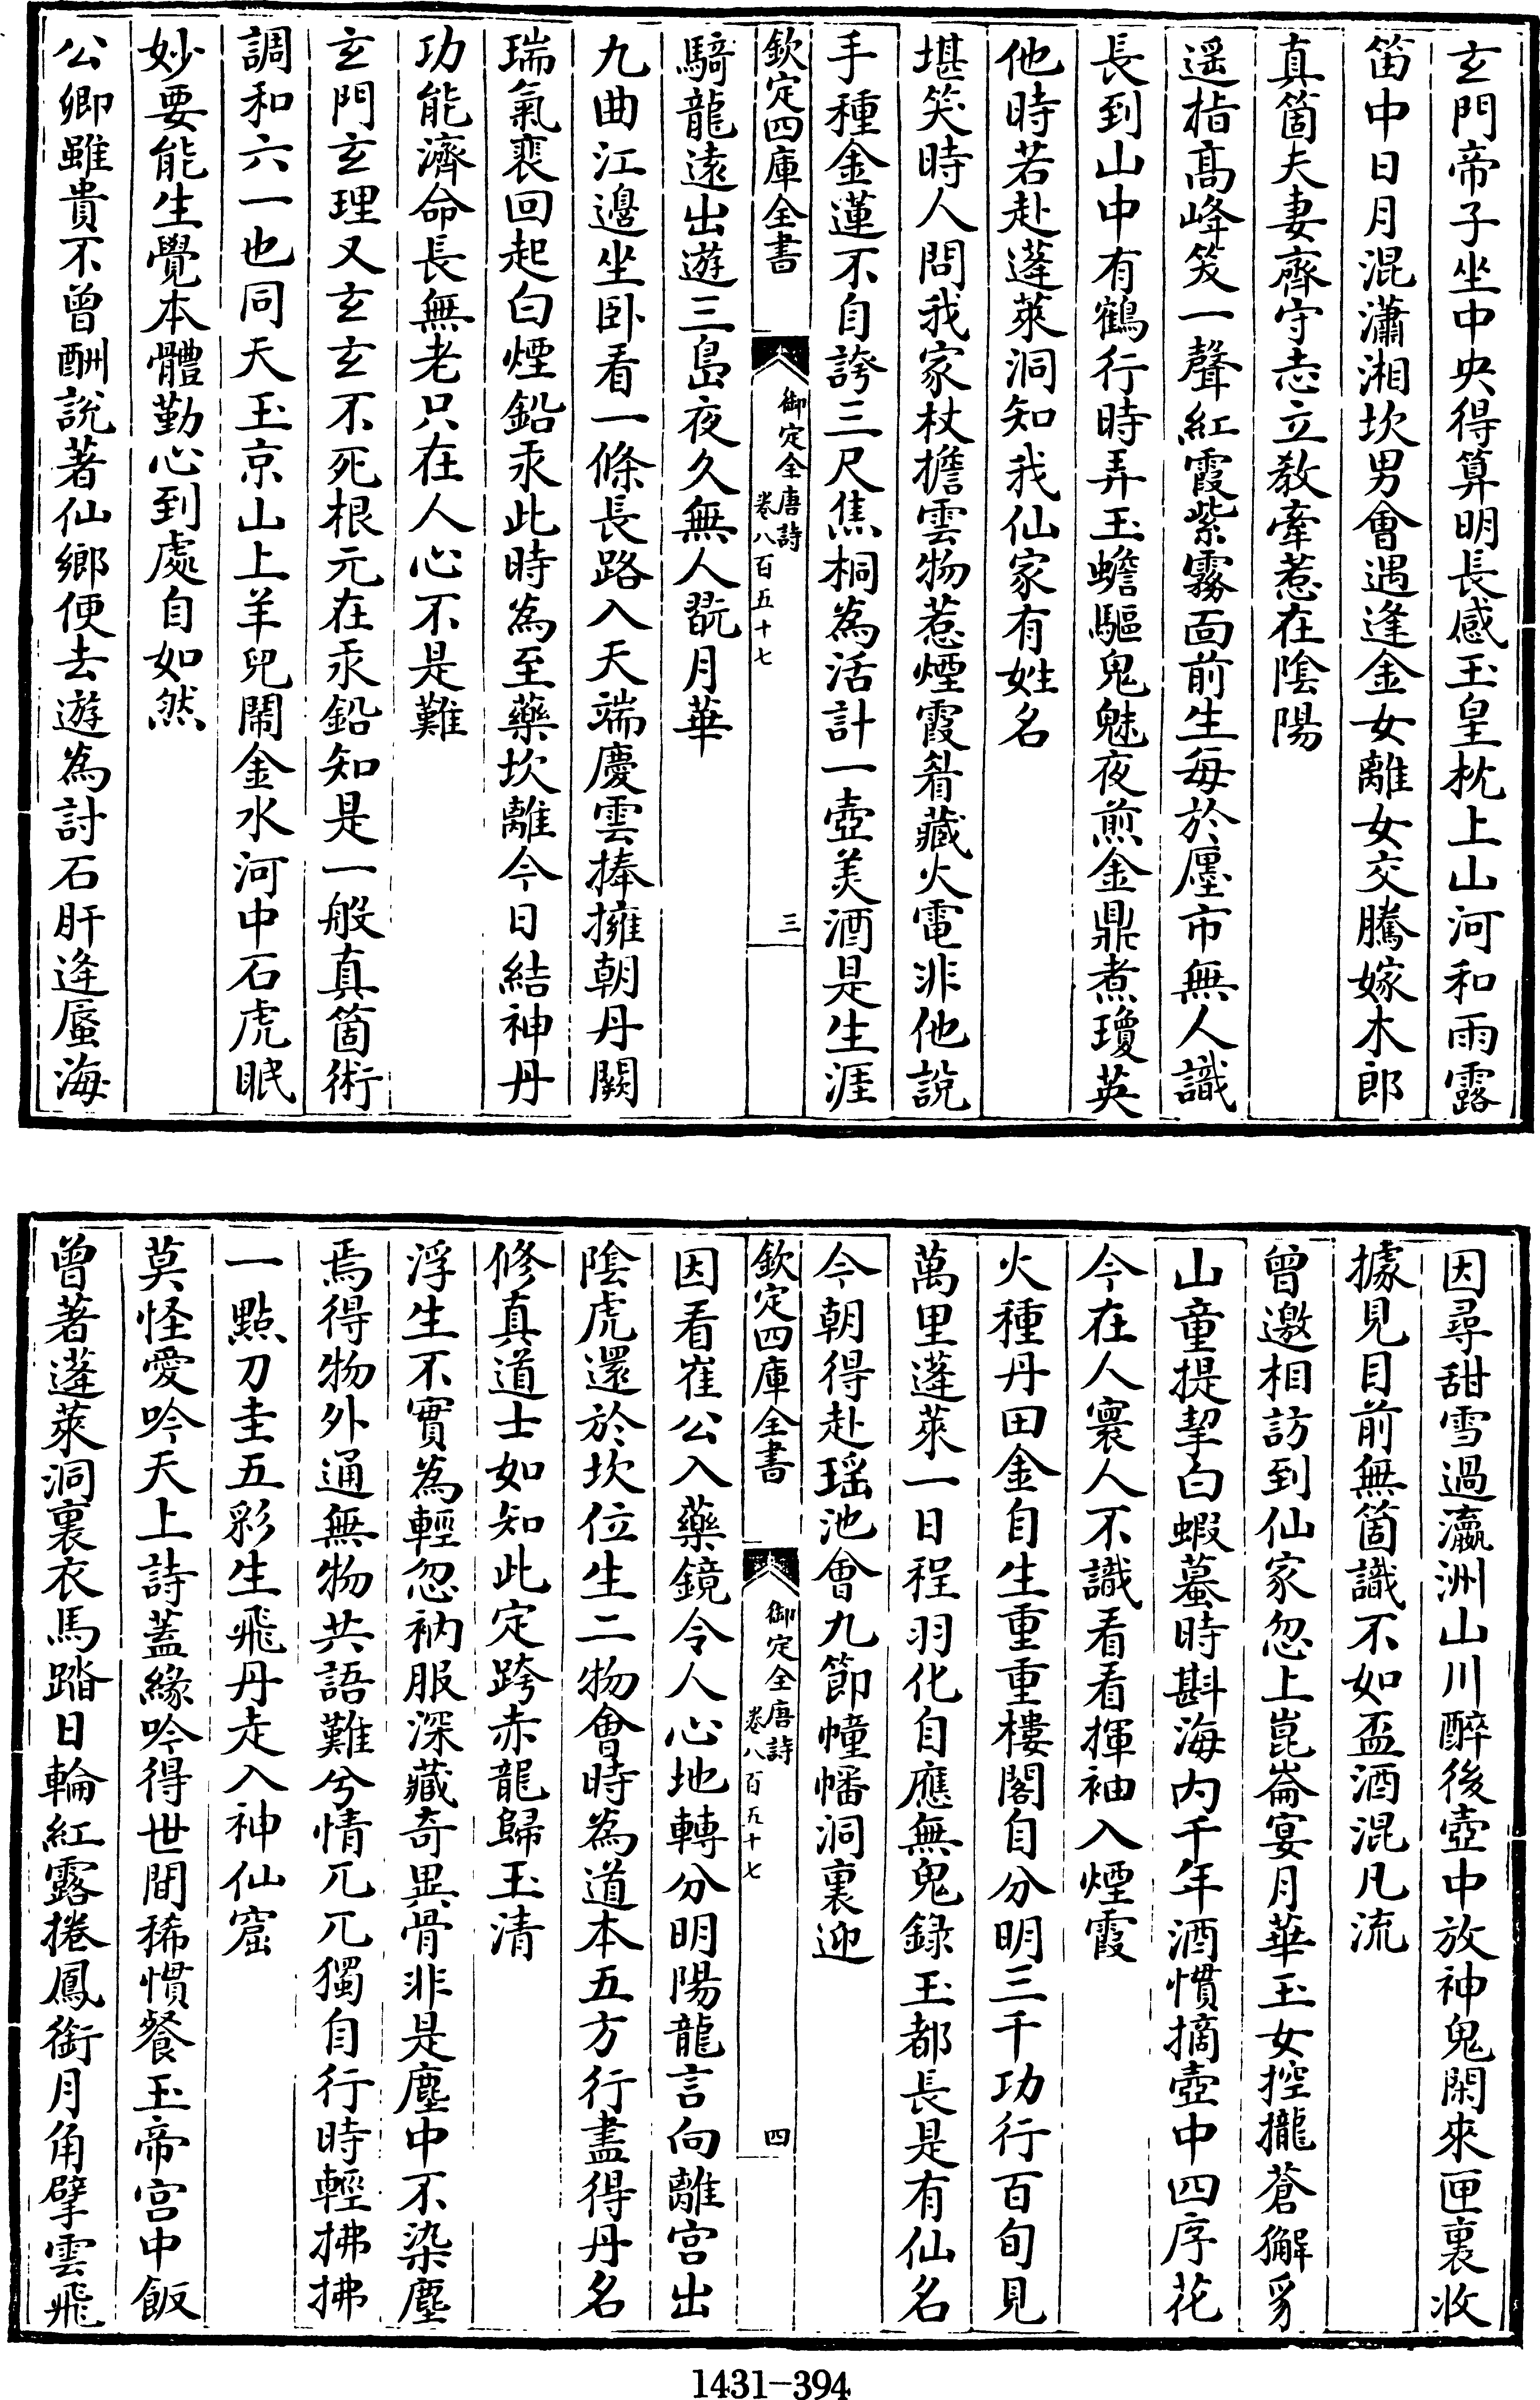 玄門帝子坐中央得算明長感玉皇枕上山河和雨露
笛中日月混瀟湘坎男會遇逢金女離女交騰嫁木郎
真箇夫妻齊守志立教牽惹在隂陽
遥指髙峰笑一聲紅霞紫霧靣前生每於廛市無人識
長到山中有鶴行時弄玉蟾驅鬼魅夜煎金鼎煮瓊英
他時若赴蓬萊洞知我仙家有姓名
堪笑時人問我家杖擔雲物惹煙霞眉藏火電非他說
手種金蓮不自誇三尺焦桐為活計一壺美酒是生涯
欽定四庫全書
御定全唐詩
卷八百五十七
三
騎龍逺出遊三島夜久無人翫月華
九曲江邊坐卧看一條長路入天端慶雲捧擁朝丹闕
瑞氣裵回起白煙鉛汞此時為至藥坎離今日結神丹
功能濟命長無老只在人心不是難
玄門玄理又玄玄不死根元在汞鉛知是一般真箇術
調和六一也同天玉京山上羊兒鬧金水河中石虎眠
妙要能生覺本體勤心到處自如然
公卿雖貴不曾酬說著仙鄉便去遊為討石肝逢蜃海
因尋甜雪過瀛洲山川醉後壺中放神鬼閑來匣裏收
據見目前無箇識不如盃酒混凡流
曾邀相訪到仙家忽上崑崙宴月華玉女控攏蒼獬豸
山童提挈白蝦蟇時斟海内千年酒慣摘壺中四序花
今在人寰人不識看看揮袖入煙霞
火種丹田金自生重重樓閣自分明三千功行百旬見
萬里蓬萊一日程羽化自應無鬼錄玉都長是有仙名
今朝得赴瑶池會九節幢幡洞裏迎
欽定四庫全書
御定全唐詩
卷八百五十七
四
因看崔公入藥鏡令人心地轉分明陽龍言向離宫出
隂虎還於坎位生二物會時為道本五方行盡得丹名
修真道士如知此定跨赤龍歸玉清
浮生不實為輕忽衲服深藏奇異骨非是塵中不染塵
焉得物外通無物共語難兮情兀兀獨自行時輕拂拂
一點刀圭五彩生飛丹走入神仙窟
莫怪愛吟天上詩蓋緣吟得世間稀慣餐玉帝宫中飯
曾著蓬萊洞裏衣馬踏日輪紅露捲鳳銜月角擘雲飛
1431-394